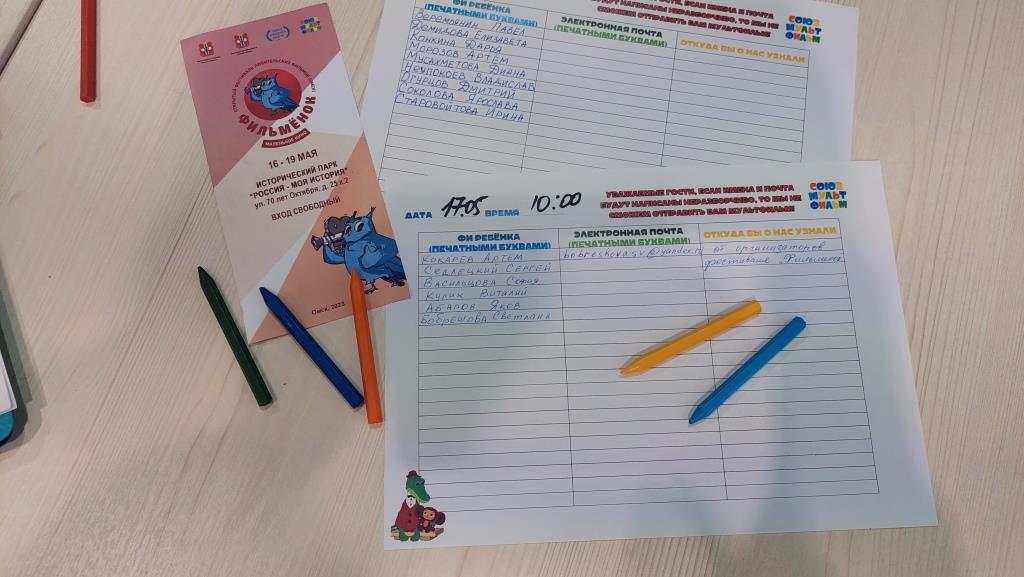 ОТКРЫТЫЙ ФЕСТИВАЛЬ ЛЮБИТЕЛЬСКИХ ФИЛЬМОВ
ФИЛЬМЁНОК
МАЛЕНЬКОЕ КИНО
16 - 19 МАЯ
ИСТОРИЧЕСКИЙ ПАРК
"РОССИЯ - МОЯ ИСТОРИЯ"
ул. 70 лет Октября, д. 25 к.2
ВХОД СВОБОДНЫЙ
Омск, 2023
БУДУТ НАПИСАНЫ НЕРАЗБОРЧИВО, ТО МЫ НЕ
СМОЖЕМ ОТПРАВИТЬ ВАМ МУЛЬТФИЛЬМ!
СОЮЗ
МУЛЬТ
ФИЛЬМ
ФИ РЕБЁНКА
(ПЕЧАТНЫМИ БУКВАМИ)
ЭЛЕКТРОННАЯ ПОЧТА
(ПЕЧАТНЫМИ БУКВАМИ)
ОТКУДА ВЫ О НАС УЗНАЛИ
Веремьянин Павел
Демидова Елизавета
Конкина Дарья
Морозов Артём
Мусахметова Диана
Непокоев Владислав
Огурцов Дмитрий
Соколова Ярослава
Старовойтова Ирина
ДАТА 17.05 ВРЕМЯ 10:00
УВАЖАЕМЫЕ ГОСТИ, ЕСЛИ ИМЕНА И ПОЧТА
БУДУТ НАПИСАНЫ НЕРАЗБОРЧИВО, ТО МЫ НЕ
СМОЖЕМ ОТПРАВИТЬ ВАМ МУЛЬТФИЛЬМ!
СОЮЗ
МУЛЬТ
ФИЛЬМ
ФИ РЕБЁНКА
(ПЕЧАТНЫМИ БУКВАМИ)
ЭЛЕКТРОННАЯ ПОЧТА
(ПЕЧАТНЫМИ БУКВАМИ)
ОТКУДА ВЫ О НАС УЗНАЛИ
Кокарев Артем
bobreshovasv@yandex.r
от организаторов
Седлецкий Сергей
фестиваля "Фильменок
Васильцова Софья
Кулик Виталий
Абаров Яков
Бобрешова Светлана